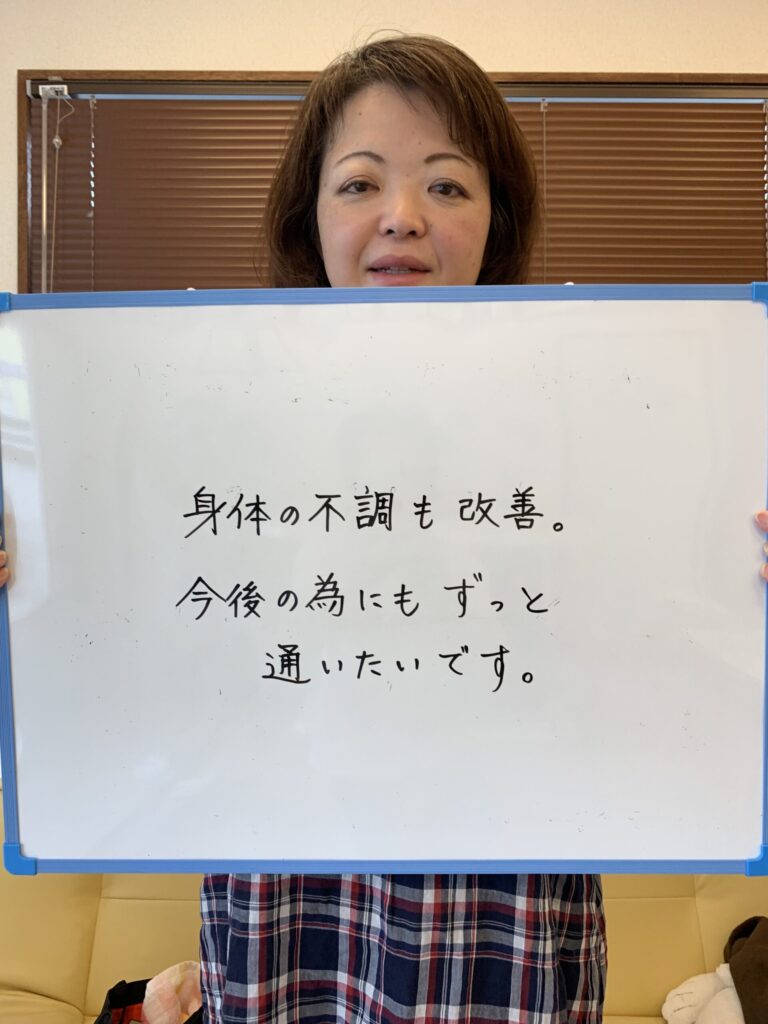 身体の不調も改善。
今後の為にもずっと
通いたいです。